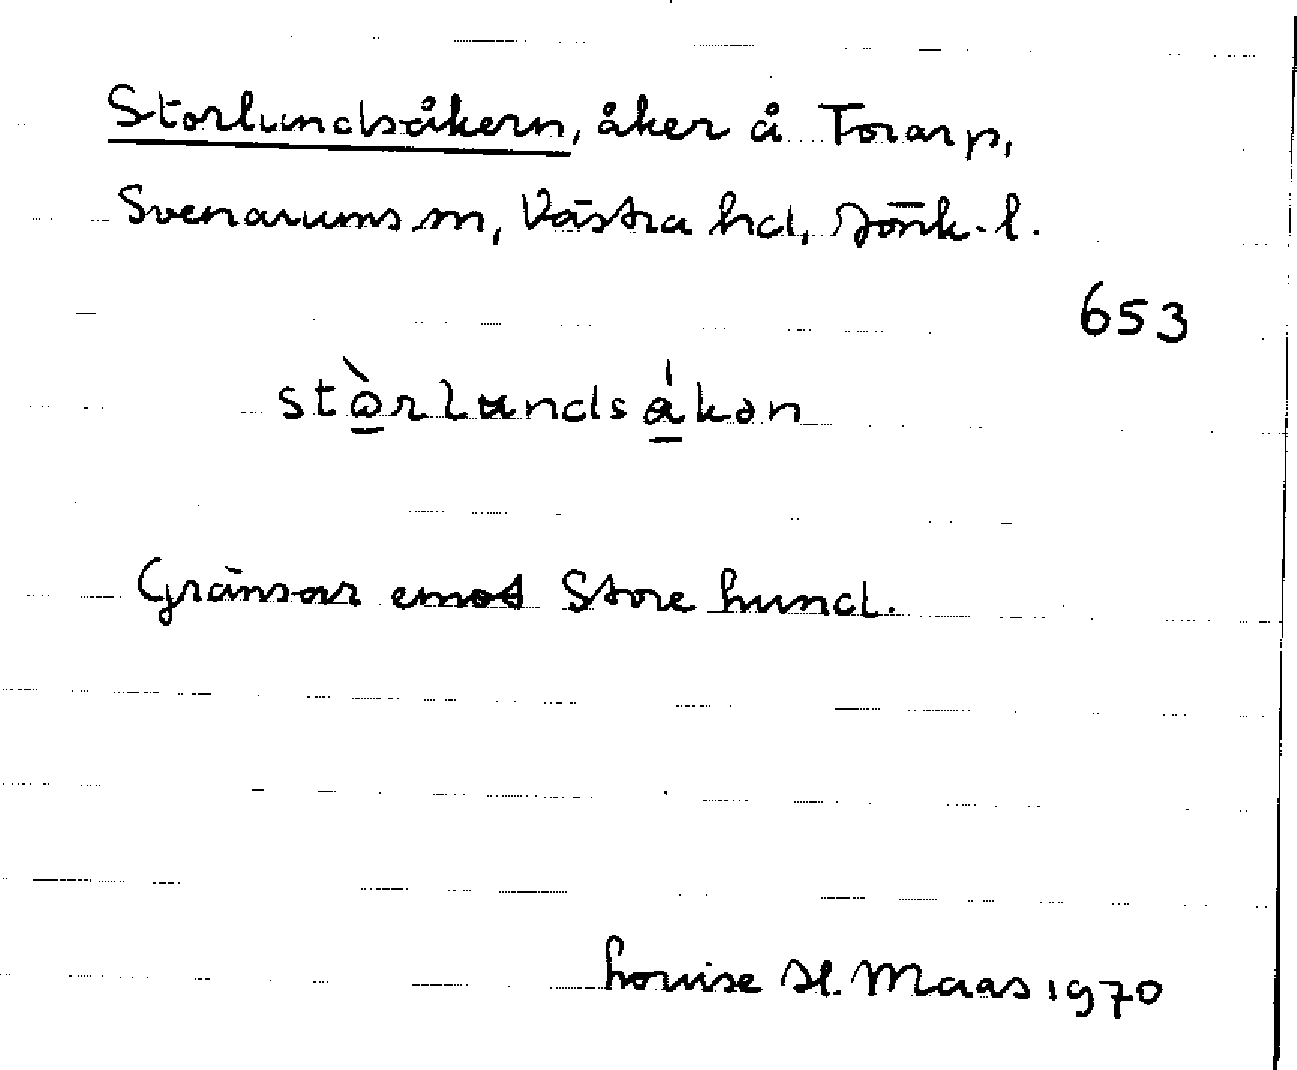 Storlundsåkern, åker å Torarp,
Svenarums sn, Västra hd, Jönk. l.
653
stòrlundsákən
Gränsar emot Store lund.
Louise H. Maas 1970